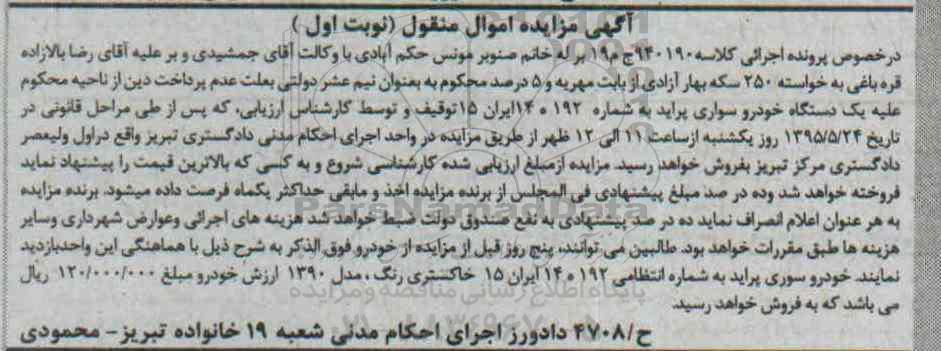 آگهی مزایده اموال منقول (نوبت اول)
درخصوص پرونده اجرائی کلاسه ۹۴۰۱۹۰ج م۱۹ بر له خانم صنوبر مونس حکم آبادی با وکالت آقای جمشیدی و بر علیه آقای رضا بالازاده
قره باغی به خواسته ۲۵۰ سکه بهار آزادی از بابت مهریه و ۵ درصد محکوم به بعنوان نیم عشر دولتی بعلت عدم پرداخت دین از ناحیه محکوم
علیه یک دستگاه خودرو سواری پراید به شماره ۱۹۲ ه ۱۴ایران ۱۵توقیف و توسط کارشناس ارزیابی، که پس از طی مراحل قانونی در
تاریخ ۱۳۹۵/۵/۲۴ روز یکشنبه ازساعت ۱۱ الی ۱۲ ظهر از طریق مزایده در واحد اجرای احکام مدنی دادگستری تبریز واقع دراول ولیعصر
دادگستری مرکز تبریز بفروش خواهد رسید. مزایده ازمبلغ ارزیابی شده کارشناسی شروع و به کسی که بالاترین قیمت را پیشنهاد نماید
فروخته خواهد شد وده در صد مبلغ پیشنهادی فی المجلس از برنده مزایده اخذ و مابقی حداکثر یکماه فرصت داده میشود. برنده مزایده
به هر عنوان اعلام انصراف نماید ده در صد پیسنهادی به نفع صندوق دولت ضبط خواهد شد هزینه های اجرائی وعوارض شهرداری وسایر
هزینه ها طبق مقررات خواهد بود. طالبین می توانند، پنج روز قبل از مزایده از خودرو فوق الذکر به شرح ذیل با هماهنگی این واحدبازدید
نمایند. خودرو سوری پراید به شماره انتظامی ۱۹۲ ه ۱۴ ایران ۱۵ خاکستری رنگ ، مدل ۱۳۹۰ ارزش خودرو مبلغ ۱۲۰/۰۰۰/۰۰۰ ریال
می باشد که به فروش خواهد رسید.
ح/۴۷۰۸ دادورز اجرای احکام مدنی شعبه ۱۹ خانواده تبریز - محمودی
ParsNamadData
پایگاه اطلاع رسانی مناقصه و مزایده